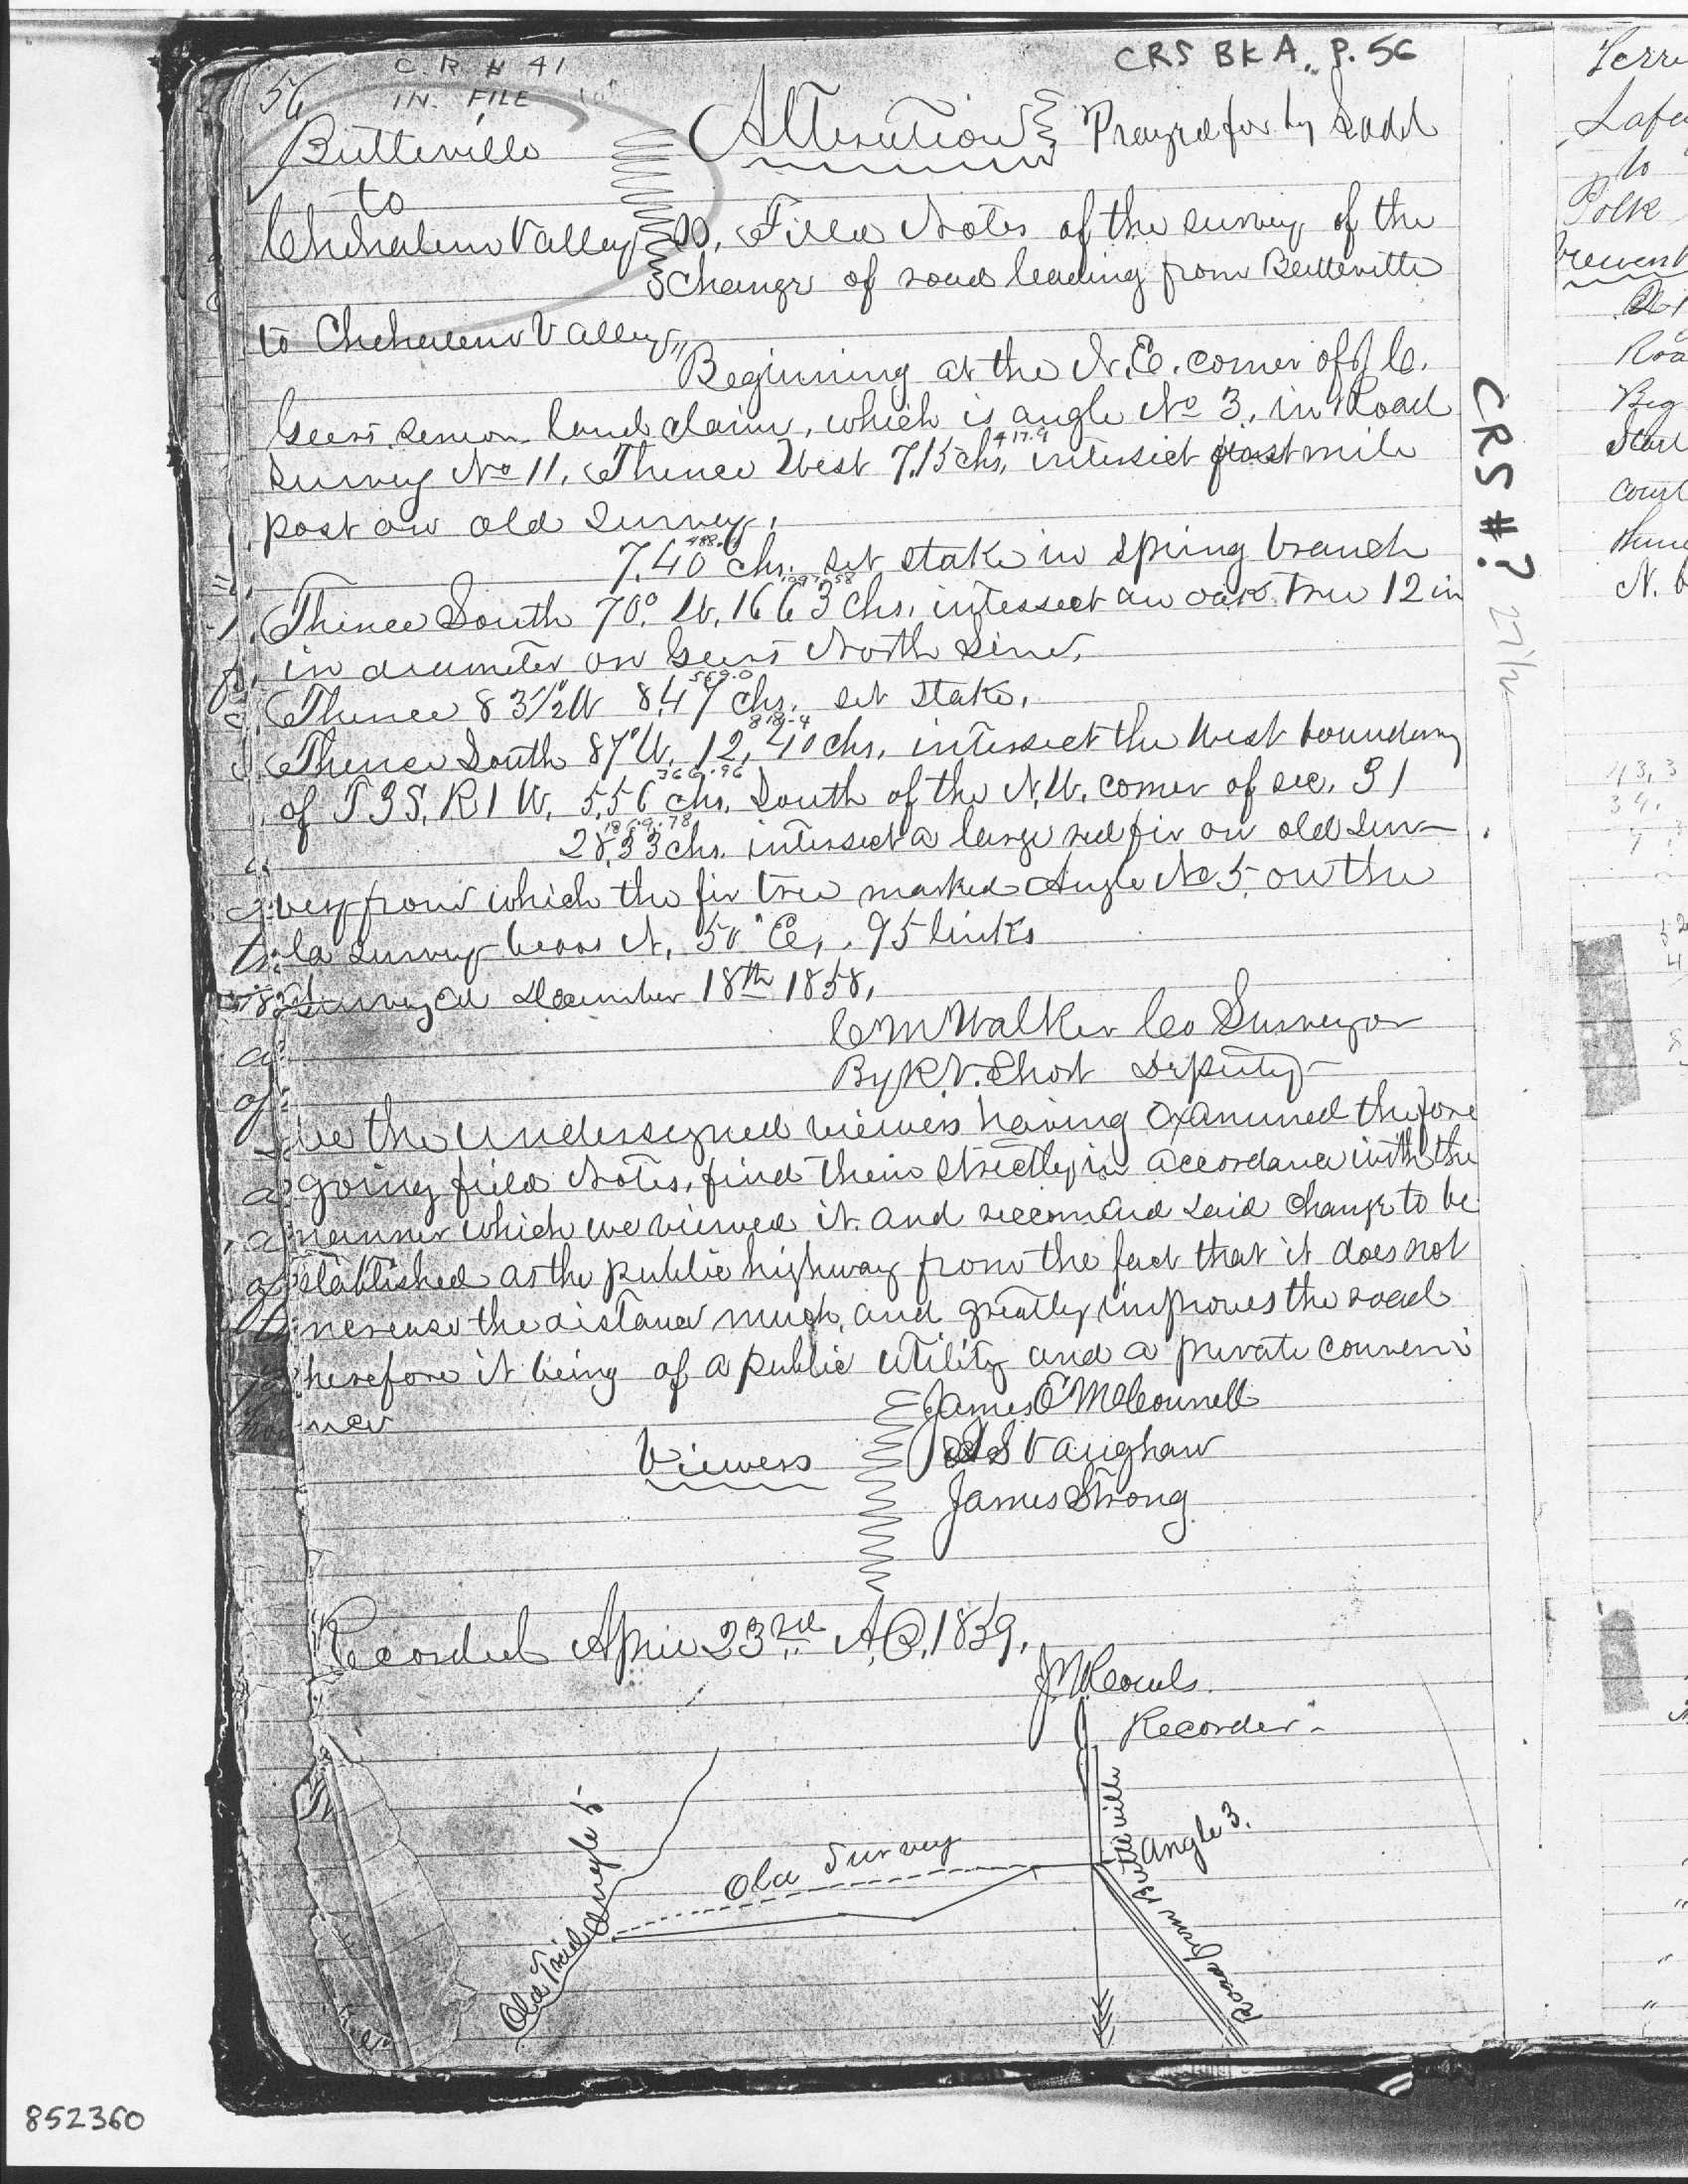 CRS BK A. P. 56
C.R. # 41
IN. FILE
56
Butteville
to
Chehalem Valley
Alteration Prayed for by Ladd
Field Notes of the survey of the
change of road leading from Butteville
to Chehalem Valley
Beginning at the N.E. corner of J C.
Geers land claim, which is angle No 3, in Road
417.9
Survey No 11. Thence West 7.15 chs, intersect mile
post on old Survey.
488.
7.40 chs. set stake in spring branch
1097.58
Thence South 70° W. 16 63 chs. intersect an oak tree 12 in
in diameter on Geers North Line.
559.0
Thence 83½ W 8.47 chs. set stake.
818.4
Thence South 87° W. 12,40 chs. intersect the West boundary
366.96
of T 3 S. R 1 W. 5.56 chs. South of the N.W. corner of sec. 31
1869.78
28,33 chs. intersect a large red fir on old Sur-
vey from which the fir tree marked Angle No 5 on the
survey bears N. 50° E, 95 links
Surveyed December 18th 1858.
C M Walker Co Surveyor
By R.V. Short Deputy
we the undersigned viewers having examined the fore
going field Notes, find them strictly in accordance with the
manner which we viewed it and reccomend said change to be
stablished as the public highway from the fact that it does not
ncrease the distance much, and greatly improves the road
herefore it being of a public utility and a private conveni
nce
Viewers
James E McConnell
Vaughan
James Strong
Recorded April 23rd A.D. 1859.
Recorder
Old Trail
Angle 5
Old Survey
Angle 3.
Road from Butteville
CRS #?
27½
852360
Terri
Lafa
to
Polk
Roa
Beg
Start
court
N.